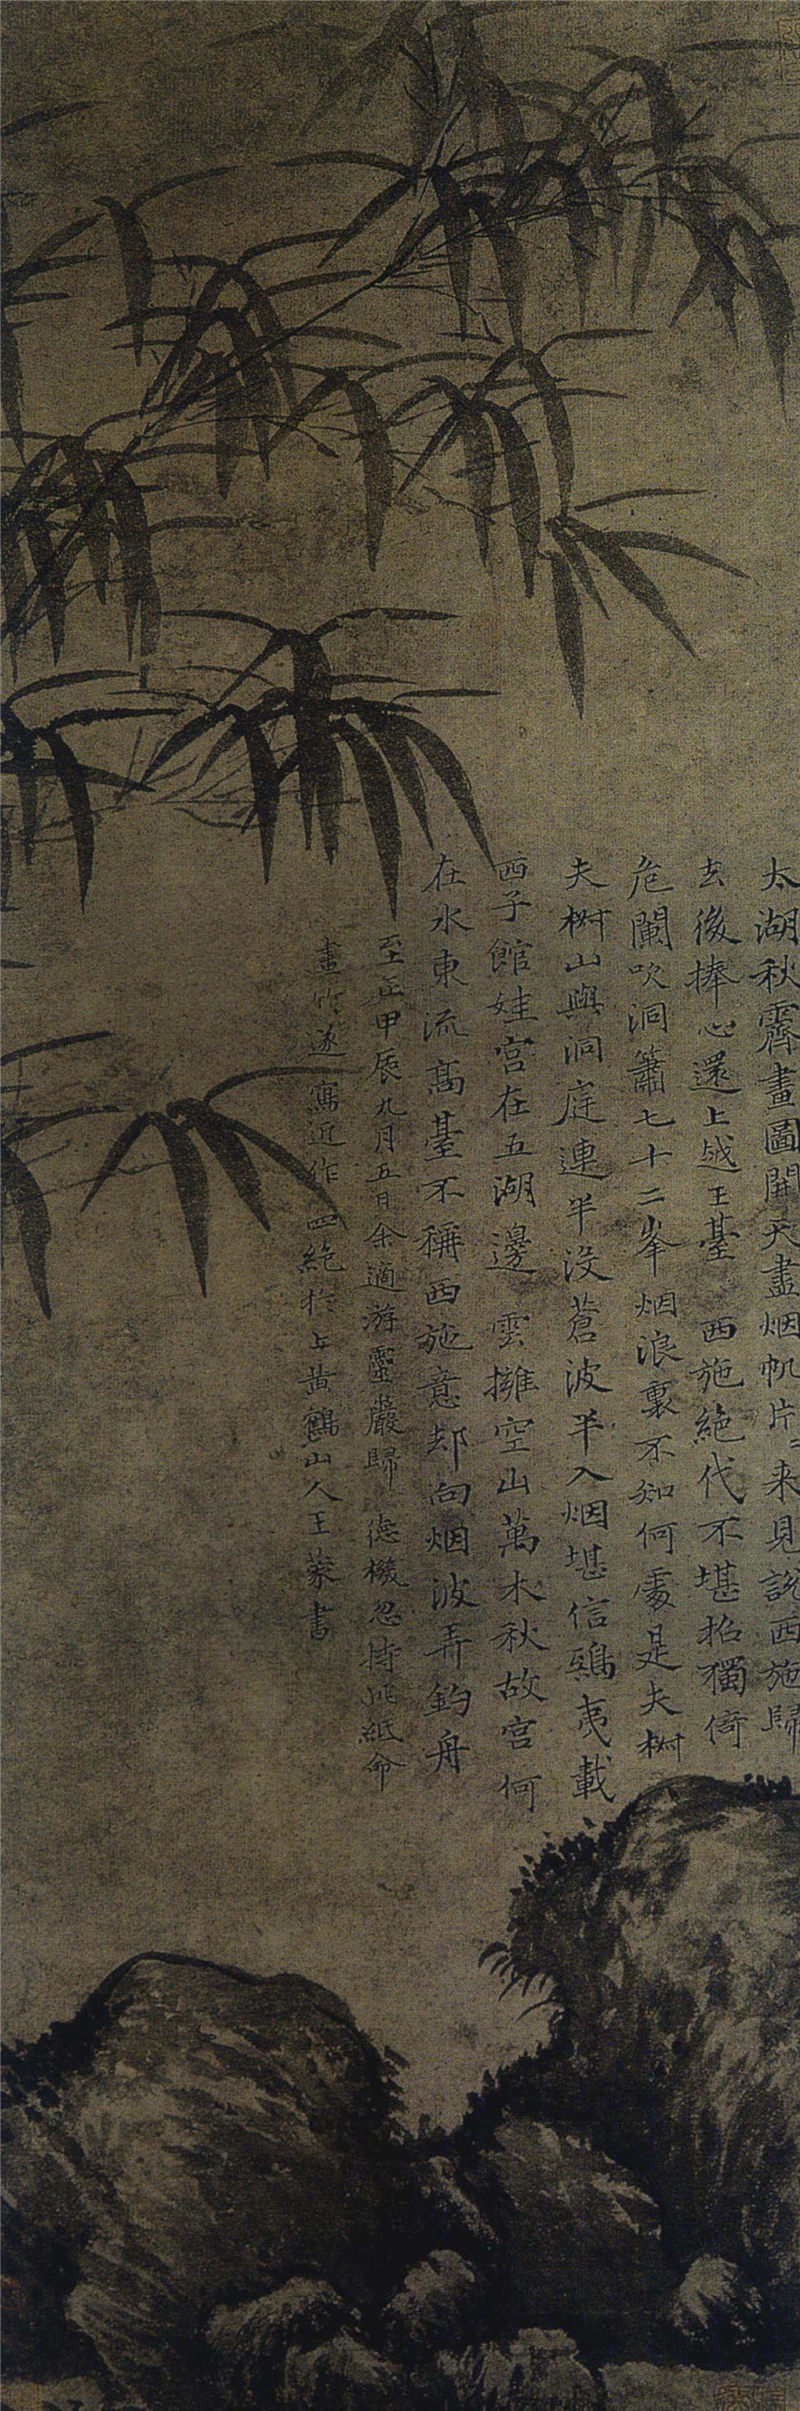 太湖秋霽畫圖開天盡烟帆片〻来見說西施歸
去後捧心還上越王臺　西施絕代不堪招獨倚
危闌吹洞簫七十二峯烟浪裏不知何處是夫樹
夫樹山與洞庭連半没蒼波半入烟堪信鴟夷載
西子館娃宮在五湖邊　雲擁空山萬木秋故宮何
在水東流髙臺不稱西施意却向烟波弄釣舟
至正甲辰九月五日余適游靈巖歸　德機忽持此紙命
畫竹遂寫近作四絕於上黃鶴山人王蒙書